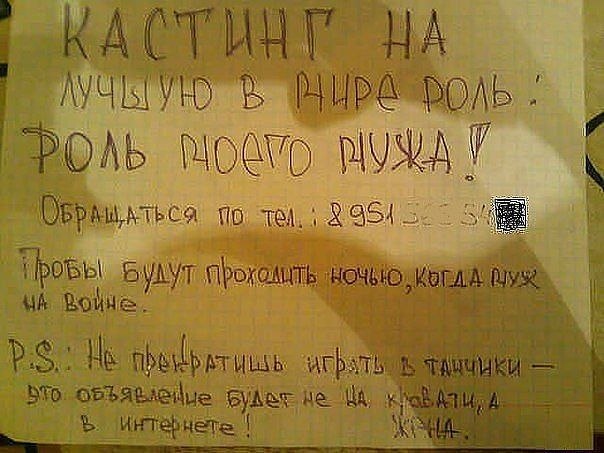 КАСТИНГ НА
ЛУЧШУЮ В МИРЕ РОЛЬ :
РОЛЬ МОЕГО МУЖА !
ОБРАЩАТЬСЯ ПО ТЕЛ.: 8 951
ПРОБЫ БУДУТ ПРОХОДИТЬ НОЧЬЮ, КОГДА МУЖ
НА ВОЙНЕ.
P.S.: НЕ ПРЕКРАТИШЬ ИГРАТЬ В ТАНЧИКИ —
ЭТО ОБЪЯВЛЕНИЕ БУДЕТ НЕ НА КРОВАТИ, А
В ИНТЕРНЕТЕ ! ЖЕНА.